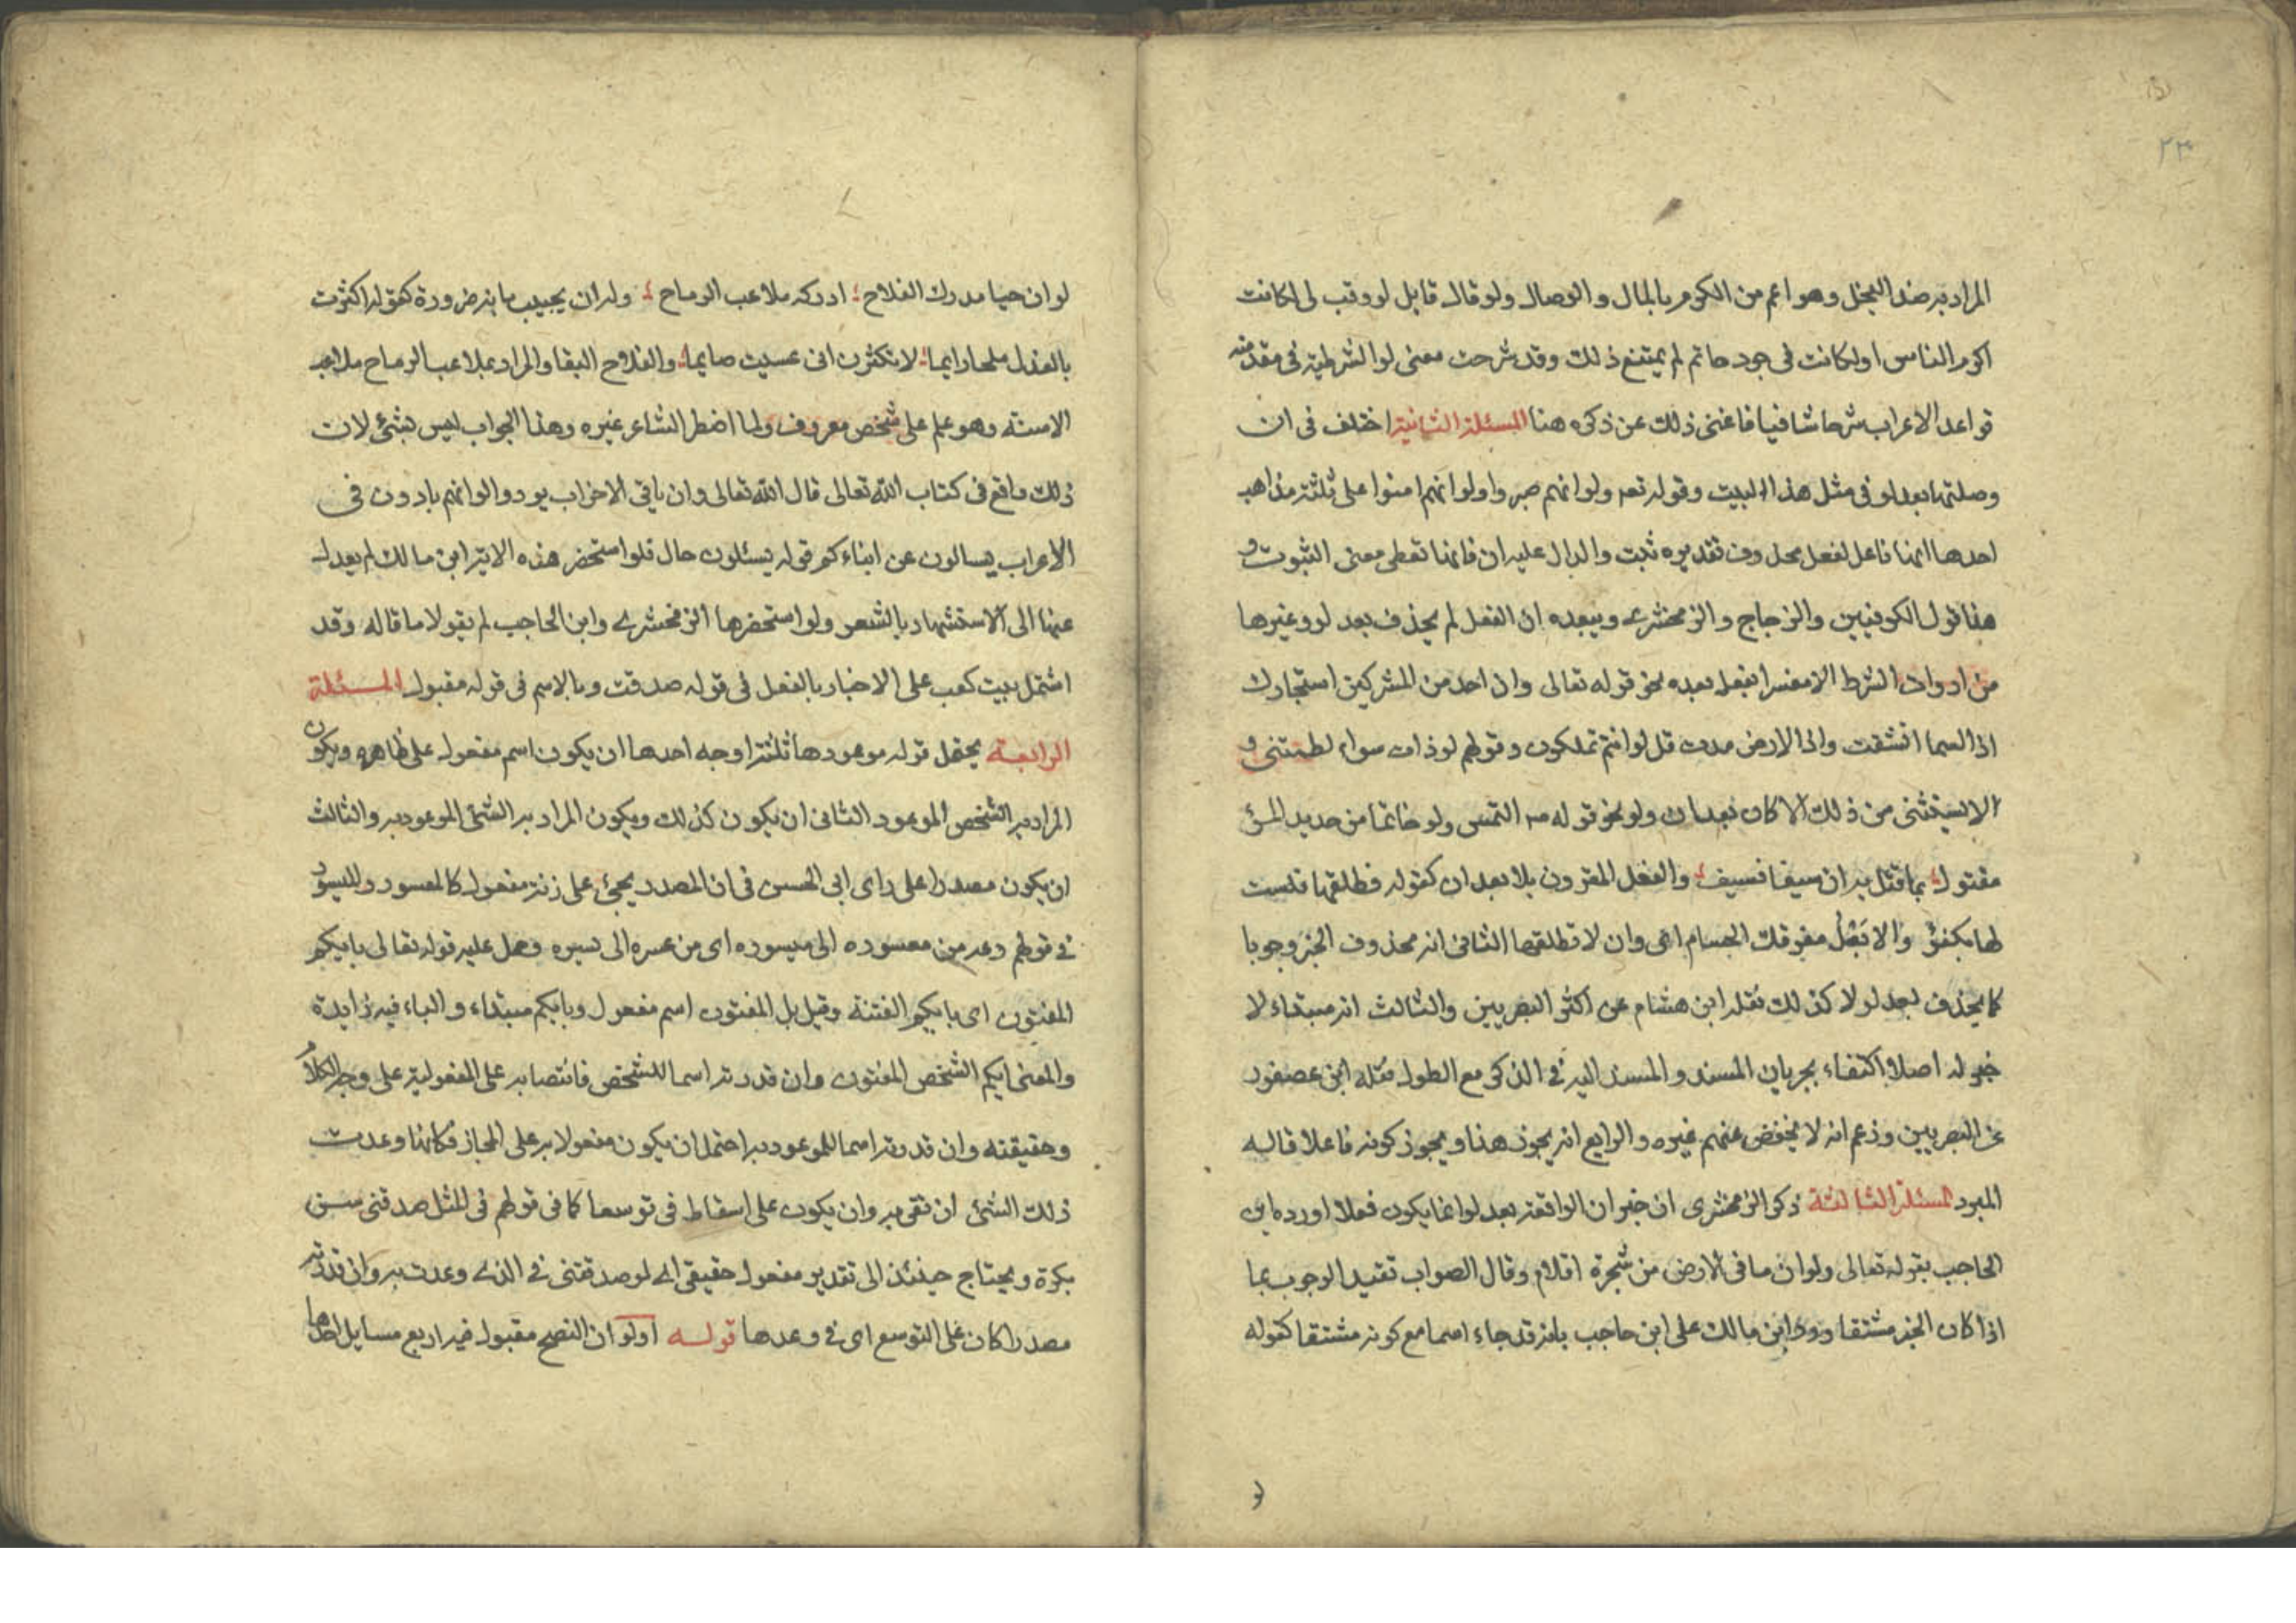 ٢٣
المراد به ضد البخل وهو اعم من الكرم بالمال والوصال ولو قال قايل لو وقب لى لكانت
اكرم الناس او لكانت فى جود حاتم لم يمتنع ذلك وقد شرحت معنى لو الشرطية فى مقدمة
قواعد الاعراب شرحا شافيا فاغنى ذلك عن ذكره هنا المسئلة الثانية اختلف فى ان
وصلتها بعد لو فى مثل هذا البيت وقوله تعه ولو انهم صبروا ولو انهم امنوا على ثلثة مذاهب
احدها انها فاعل لفعل محذوف تقديره ثبت والدال عليه ان فانها تعطى معنى الثبوت و
هذا قول الكوفيين والزجاج والزمخشرى ويبعده ان الفعل لم يحذف بعد لو وغيرها
من ادوات الشرط الا مفسرا بفعل بعده نحو قوله تعالى وان احد من المشركين استجارك
اذا السما انشقت واذا الارض مدت قل لو انتم تملكون وقولهم لو ذات سوار لطمتنى و
الا يستثنى من ذلك الا كان بعد ان ولو نحو قوله صم التمس ولو خاتما من حديد المرئ
مقتول بما قتل به ان سيفا فسيف والفعل المقرون بلا بعد ان كقوله فطلقها فلست
لها بكفؤ والا يَعْلُ مفرقك الحسام اى وان لا تطلقها الثانى انه محذوف الخبر وجوبا
كما يحذف بعد لولا كذلك نقله ابن هشام عن اكثر البصريين والثالث انه مبتداء لا
خبر له اصلا اكتفاء بجريان المسند والمسند اليه فى الذكر مع الطول نقله ابن عصفور
عن البصريين وزعم انه لا يحفض عنهم غيره والرابع انه يجوز هذا ويجوز كونه فاعلا قاله
المبرد المسئلة الثالثة ذكر الزمخشرى ان خبر ان الواقعة بعد لو انما يكون فعلا اورده ابن
الحاجب بقوله تعالى ولو ان ما فى الارض من شجرة اقلام وقال الصواب تقييد الوجوب بما
اذا كان الخبر مشتقا ورد ابن مالك على ابن حاجب بانه قد جاء اسما مع كونه مشتقا كقوله
لو ان حيا مدرك الفلاح ادركه ملاعب الرماح وله ان يجيب بانه ضرورة كقوله اكثرت
بالعذل ملحا دايما لا تكثرن انى عسيت صايما والفلاح البقا والمراد بملاعب الرماح ملاعب
الاسنة وهو علم على شخص معروف ولما اضطر الشاعر غيره وهذا الجواب ليس بشئ لان
ذلك واقع فى كتاب الله تعالى قال الله تعالى وان ياتى الاحزاب يودوا لو انهم بادون فى
الاعراب يسالون عن ابناءكم قوله يسئلون حال فلو استحضر هذه الاية ابن مالك لم يعدل
عنها الى الاستشهاد بالشعر ولو استحضرها الزمخشرى وابن الحاجب لم يقولا ما قاله وقد
اشتمل بيت كعب على الاخبار بالفعل فى قوله صدقت وبالاسم فى قوله مقبول المسئلة
الرابعة يحتمل قوله موعودها ثلثة اوجه احدها ان يكون اسم مفعول على ظاهره ويكون
المراد به الشخص الموعود الثانى ان يكون كذلك ويكون المراد به الشئ الموعود به والثالث
ان يكون مصدرا على راى ابى الحسن فى ان المصدر يجئ على زنة مفعول كالمعسور والميسور
فى قولهم دعه من معسوره الى ميسوره اى من عسره الى يسره وحمل عليه قوله تعالى بايكم
المفتون اى بايكم الفتنة وقيل بل المفتون اسم مفعول وبايكم مبتداء والباء فيه زايدة
والمعنى ايكم الشخص المفتون وان قدرته اسما للشخص فانتصابه على المفعولية على وجه الكلام
وحقيقته وان قدرته اسما للموعود به احتمل ان يكون مفعولا به على المجاز فكانها وعدت
ذلك الشئ ان تفى به وان يكون على اسقاط فى توسعا كما فى قولهم فى المثل صدقنى سن
بكره ويحتاج حينئذ الى تقدير مفعول حقيقى اى لو صدقتنى فى الذى وعدت به وان قدرته
مصدرا كان على التوسع اى فى وعدها قوله او لو ان النصح مقبول فيه اربع مسايل احدها